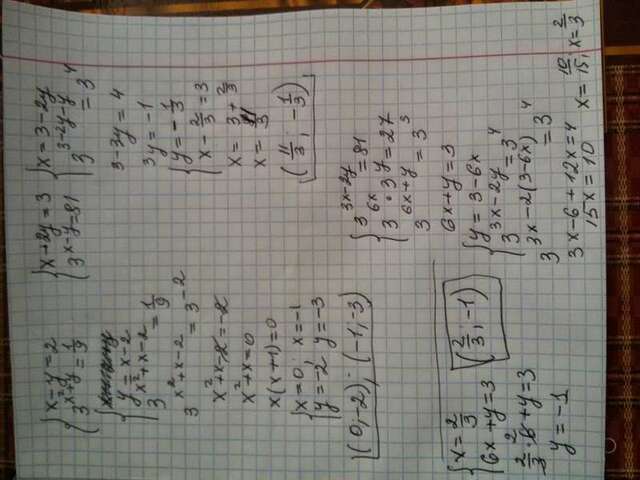 {x-y=2
{3^(x²+y)=1/9
{y=x-2
{3^(x²+x-2)=1/9
3^(x²+x-2)=3^(-2)
x²+x-2=-2
x²+x=0
x(x+1)=0
{x=0, x=-1
{y=-2 y=-3
(0,-2); (-1,-3)
{x+2y=3
{3^(x-y)=81
{x=3-2y
{3^(3-2y-y)=3⁴
3-3y=4
3y=-1
{y=-1/3
{x-2/3=3
x=3+2/3
x=11/3
(11/3; -1/3)
{3^(3x-2y)=81
{3^(6x)·3^y=27
3^(6x+y)=3³
6x+y=3
{y=3-6x
{3^(3x-2y)=3⁴
3^(3x-2(3-6x))=3⁴
3x-6+12x=4
15x=10
x=10/15; x=2/3
{x=2/3
{6x+y=3
2/3·6+y=3
y=-1
(2/3; -1)